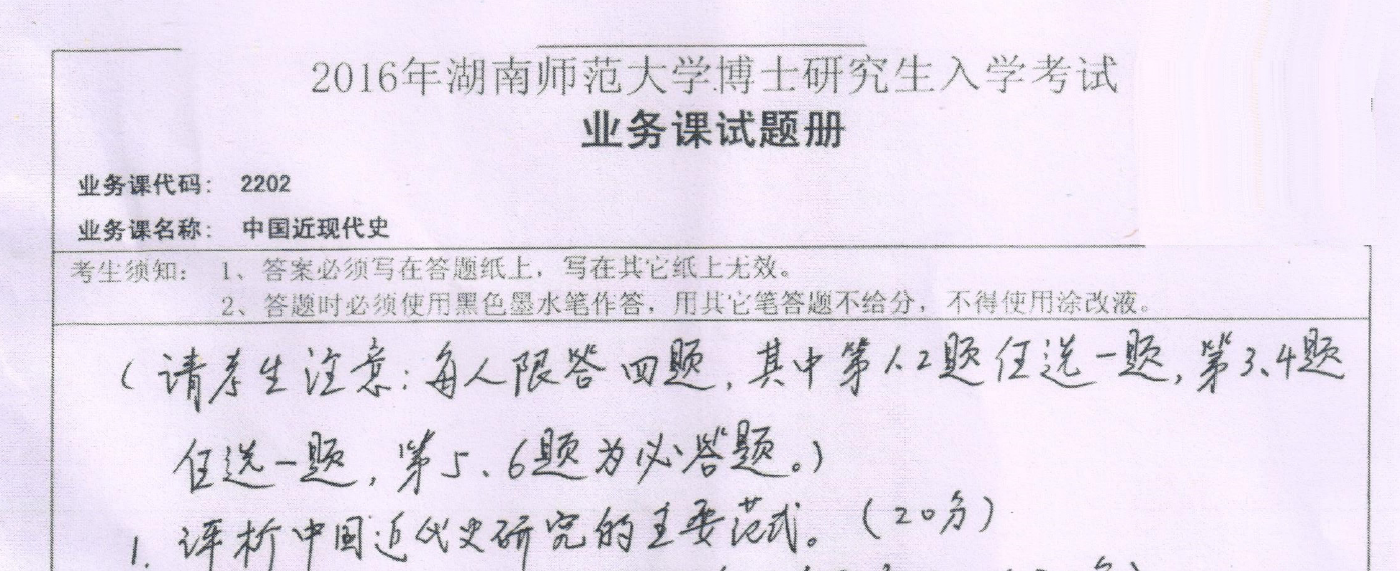 2016年湖南师范大学博士研究生入学考试
业务课试题册
业务课代码： 2202
业务课名称： 中国近现代史
考生须知： 1、答案必须写在答题纸上，写在其它纸上无效。
2、答题时必须使用黑色墨水笔作答，用其它笔答题不给分，不得使用涂改液。
（请考生注意：每人限答四题，其中第1、2题任选一题，第3、4题
任选一题，第5、6题为必答题。）
1. 评析中国近代史研究的主要范式。（20分）